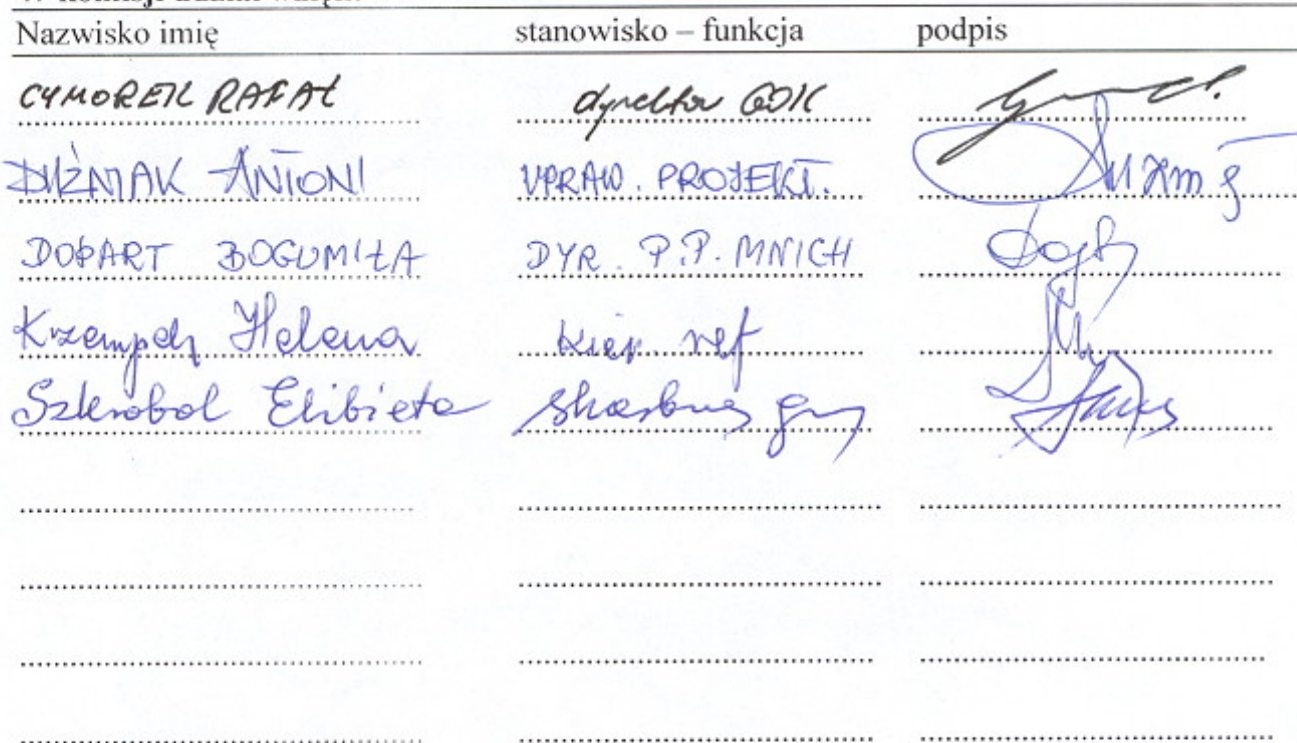 Nazwisko imię stanowisko – funkcja podpis
CYMOREK RAFAŁ dyrektor GOK
DUŹNIAK ANTONI UPRAW. PROJEKT.
DOPART BOGUMIŁA DYR. P.P. MNICH
Krzempek Helena kier. ref
Szkrobol Elibieta skarbnik gm